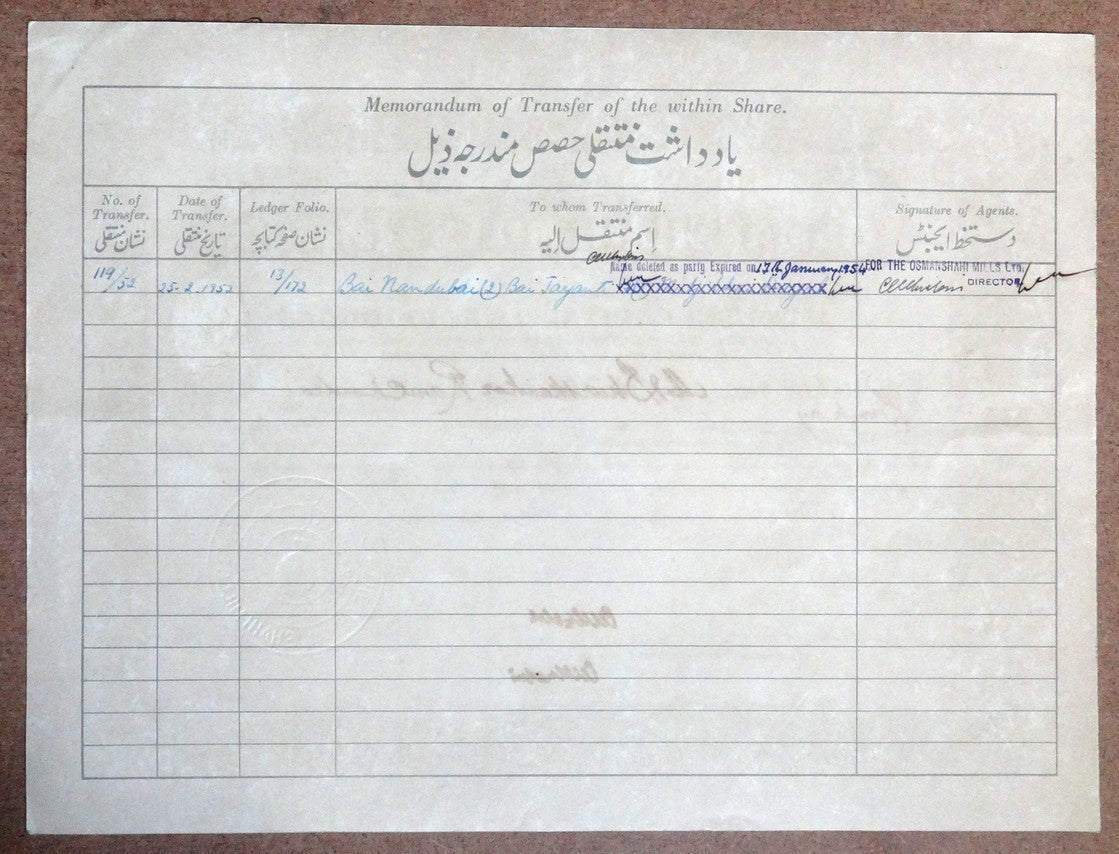 Memorandum of Transfer of the within Share.
یادداشت منتقلی حصص مندرجہ ذیل
No. of Transfer.
نشان منتقلی
Date of Transfer.
تاریخ منتقلی
Ledger Folio.
نشان صفحہ کتابچہ
To whom Transferred.
اسم منتقل الیہ
Signature of Agents.
دستخط ایجنٹس
Name deleted as party Expired on 17th January 1954
FOR THE OSMANSHAHI MILLS LTD.
119/52
25-2-1952
13/172
Bai Nandubai (2) Bai Jayanti
XXXXXXXXXXXXXXXXXXXXXXXX
DIRECTOR